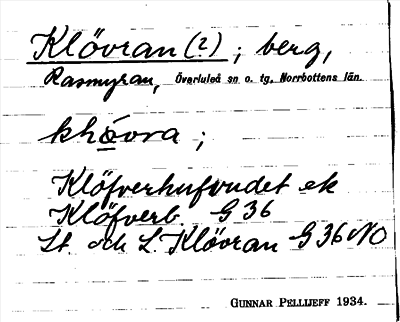 Klövran (?) ; berg,
Rasmyran, Överluleå sn o. tg, Norrbottens län.
khövra ;
Klöfverhufvudet ek
Klöfverb. G 36
St. och L. Klövran G 36 NO
GUNNAR PELLIJEFF 1934.